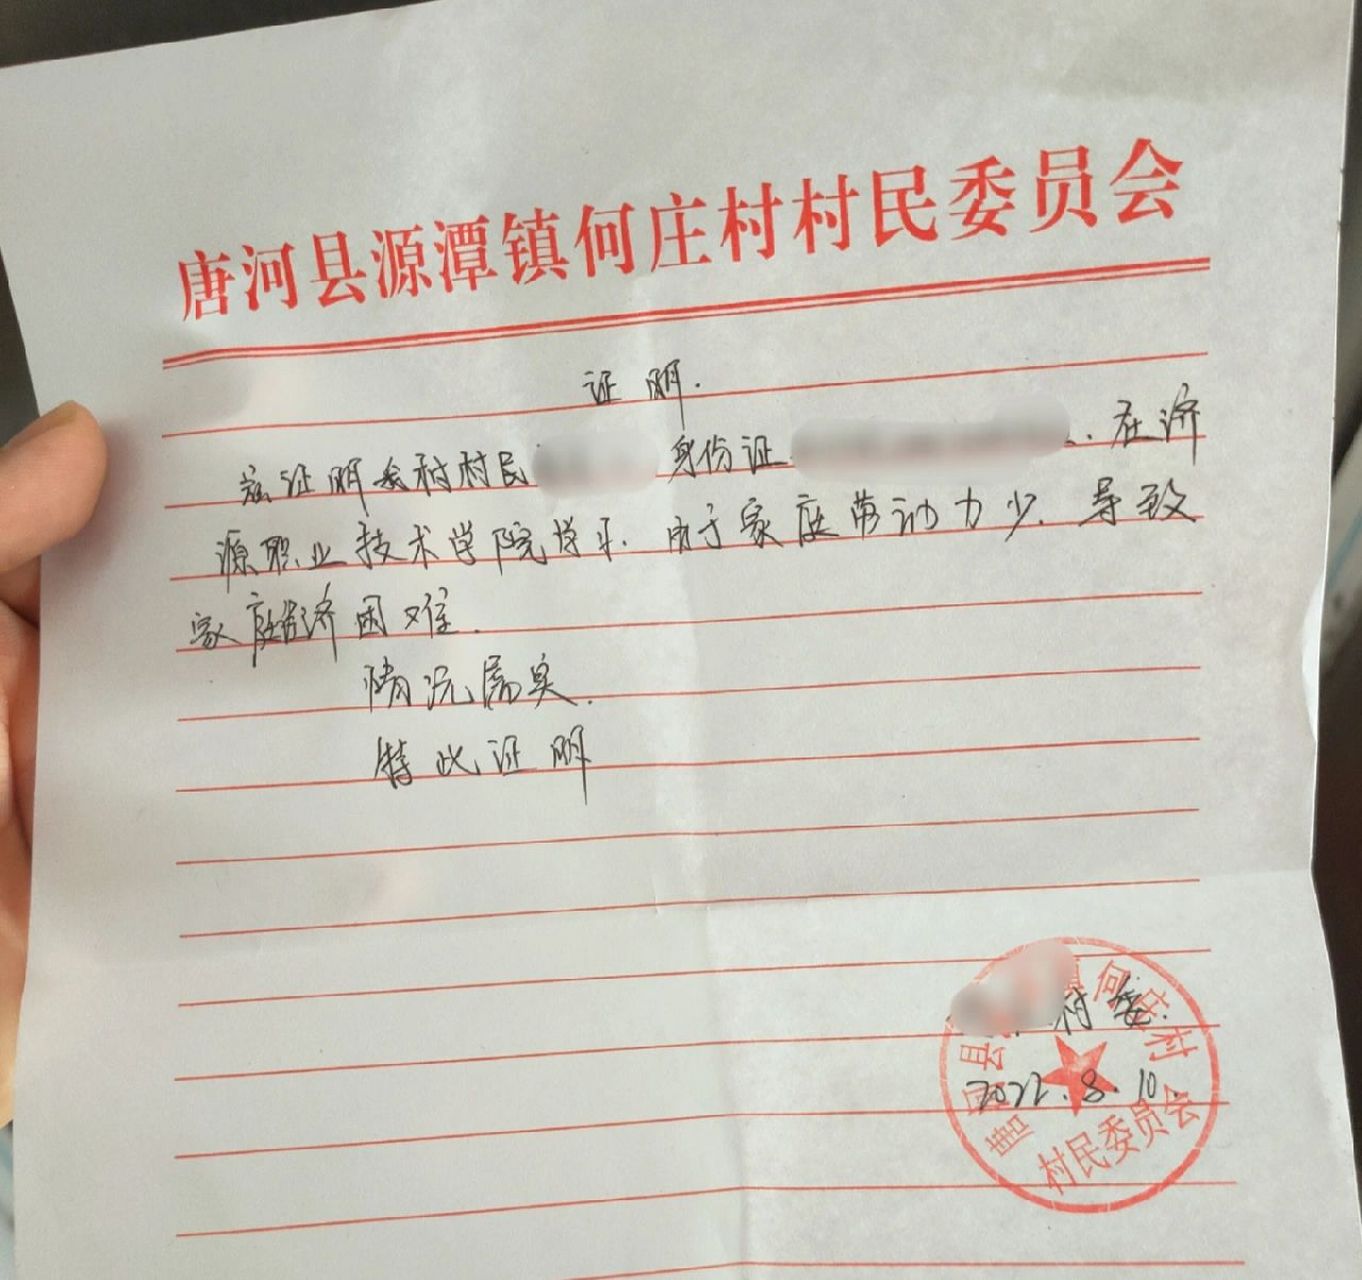 唐河县源潭镇何庄村村民委员会
证明.
兹证明我村村民 身份证 . 在济
源职业技术学院学习. 由于家庭劳动力少. 导致
家庭经济困难.
情况属实.
特此证明
村委.
2022.8.10
县 镇何庄村
村民委员会